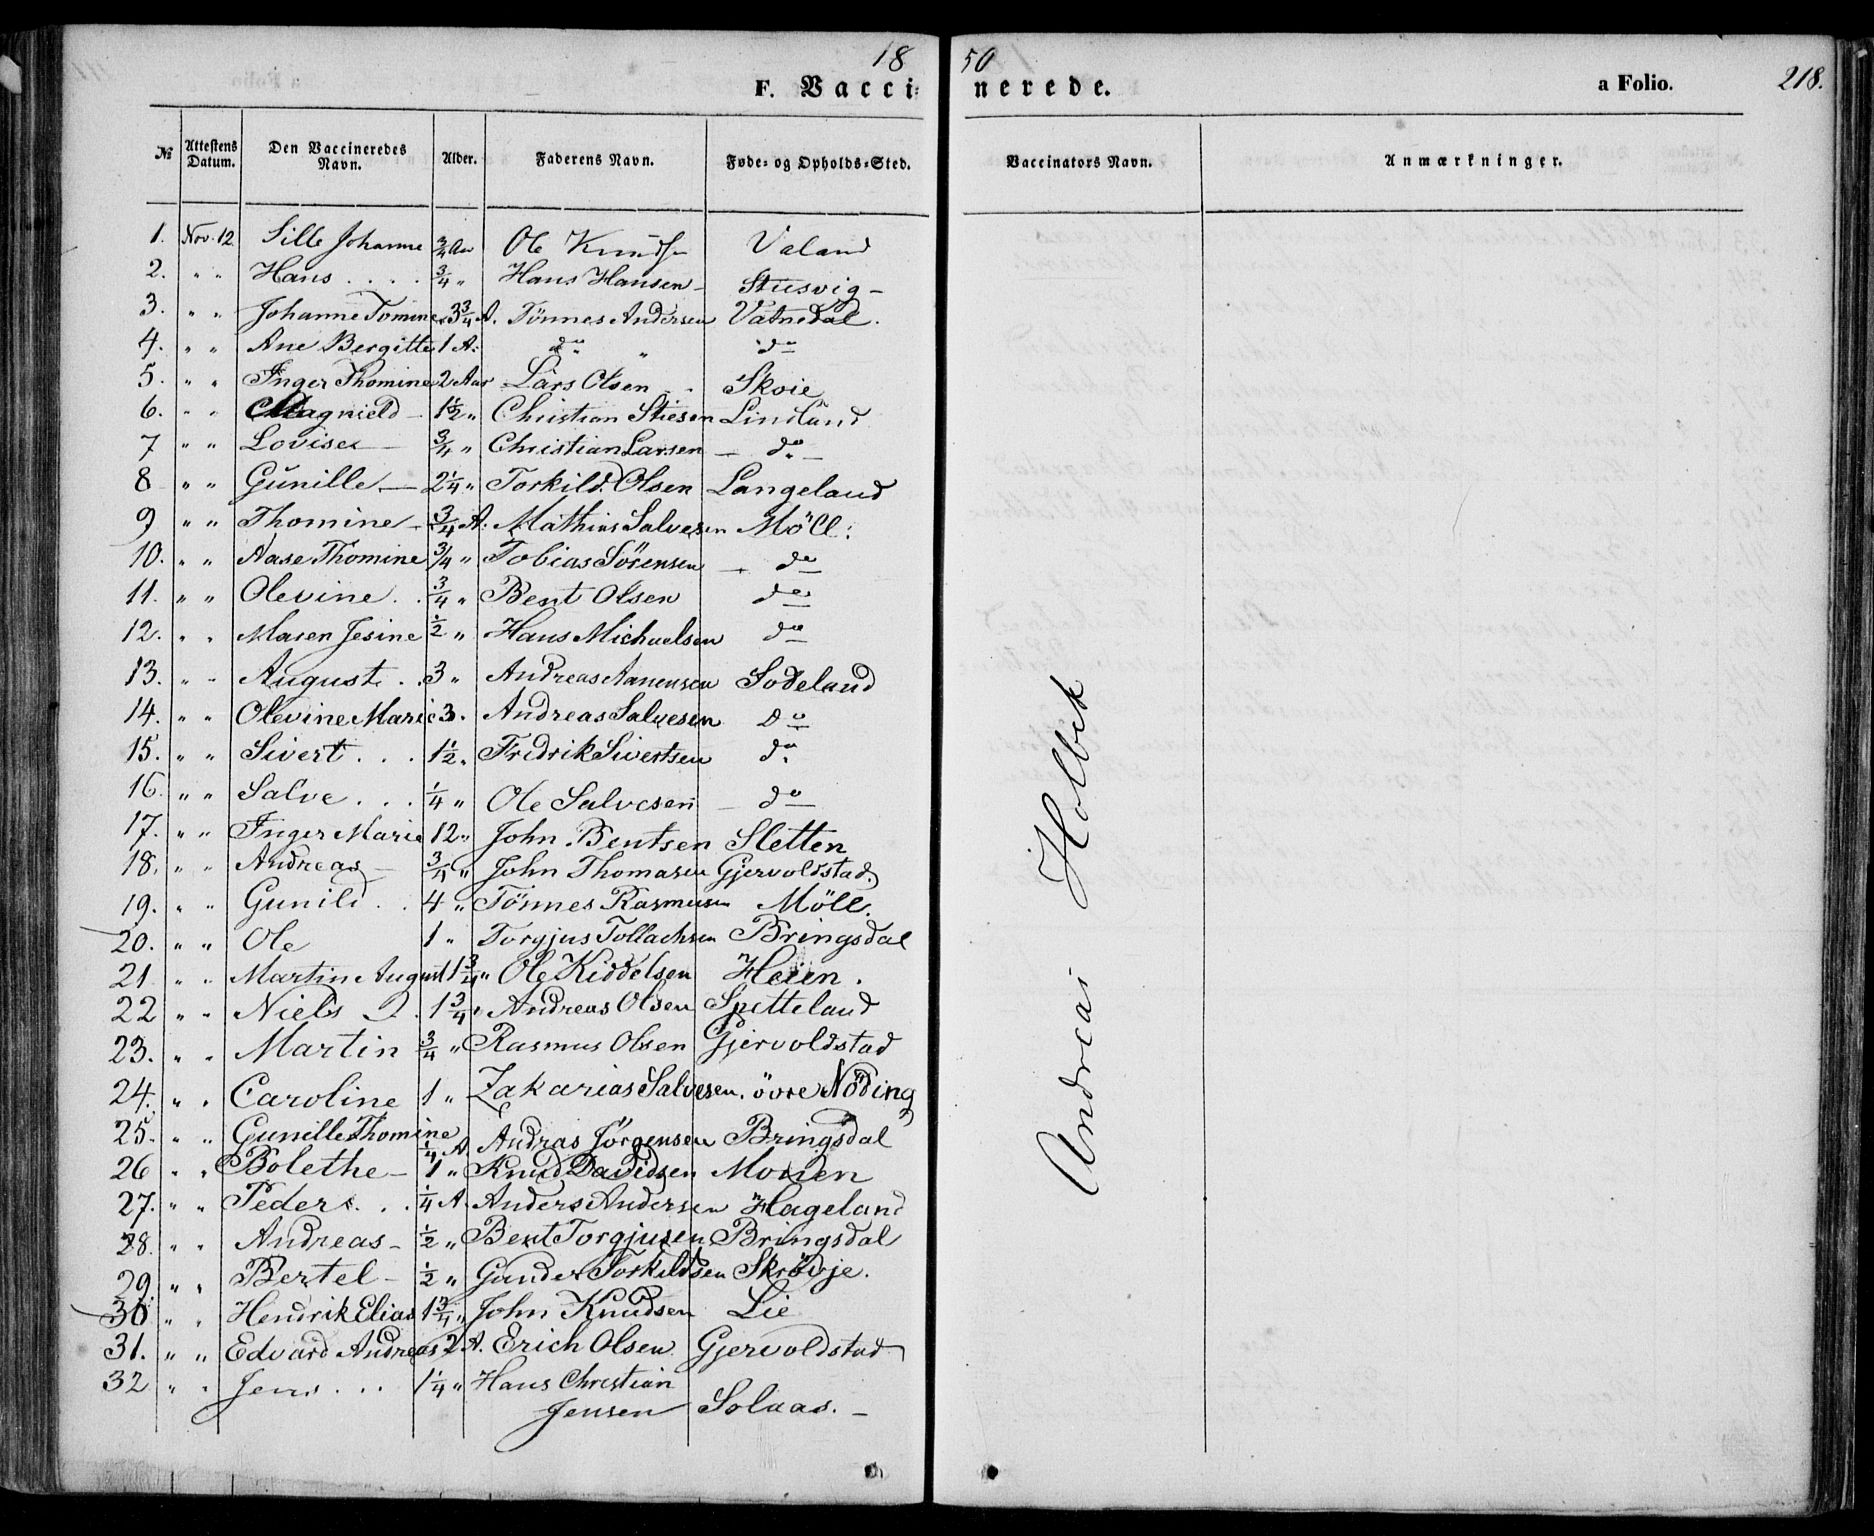 1850
F. Vaccinerede.
a Folio. 218.
№ | Attestens Datum. | Den Vaccineredes Navn. | Alder. | Faderens Navn. | Føde- og Opholds-Sted. | Vaccinators Navn. | Anmærkninger.
1. Nov. 12 Sille Johanne 3/4 Aar Ole Knuds Valand
2. " " Hans . . . . 3/4 " Hans Hansen Stusvig
3. " " Johanne Tomine 3 3/4 A. Tönnes Andersen Vatnedal.
4. " " Ane Bergitte 1 A. do " do
5. " " Inger Thomine 2 Aar Lars Olsen Skoie
6. " " Magnield 1 1/2 " Christian Stiesen Lindland
7 " " Lovise 3/4 " Christian Larsen do
8 " " Gunille 2 1/4 " Torkild Olsen Langeland
9 " " Thomine 3/4 A. Mathias Salvesen Möll.
10. " " Aase Thomine 3/4 " Tobias Sörensen do
11. " " Olevine . . 3/4 " Bent Olsen do
12. " " Maren Jesine 1/2 " Hans Michaelsen do
13. " " August . . 3 " Andreas Aanensen Sodeland
14. " " Olevine Marie 3. Andreas Salvesen Do
15. " " Sivert . . . 1 1/2 " Fredrik Sivertsen do
16. " " Salve . . . 1/4 " Ole Salvesen do
17. " " Inger Marie 12 " John Bentsen Sletten
18. " " Andreas 3/4 " John Thomasen Gjervoldstad.
19. " " Gunild . . 4 " Tönnes Rasmusen Möll.
20. " " Ole 1 " Torgjus Tollachsen Bringsdal
21. " " Martin August 1 3/4 " Ole Kiddelsen Heien.
22 " " Niels 1 3/4 " Andreas Olsen Spetteland
23. " " Martin 3/4 " Rasmus Olsen Gjervoldstad
24. " " Caroline 1 " Zakarias Salvesen. övre Nöding
25. " " Gunille Thomine 1/4 A. Andras Jörgensen Bringsdal
26 " " Bolethe 1 " Knud Davidsen Monen
27. " " Peder . . 1/4 A. Anders Andersen Hageland
28. " " Andreas 1/2 " Bent Torgjusen Bringsdal
29. " " Bertel 1/2 " Gunder Torkildsen Skrövje.
30 " " Hendrik Elias 1 3/4 " John Knudsen Lie
31. " " Edvard Andreas 2 A. Erich Olsen Gjervoldstad
32 " " Jens . . . 1 1/4 " Hans Christian
Jensen Solaas.
Andreas Holbek